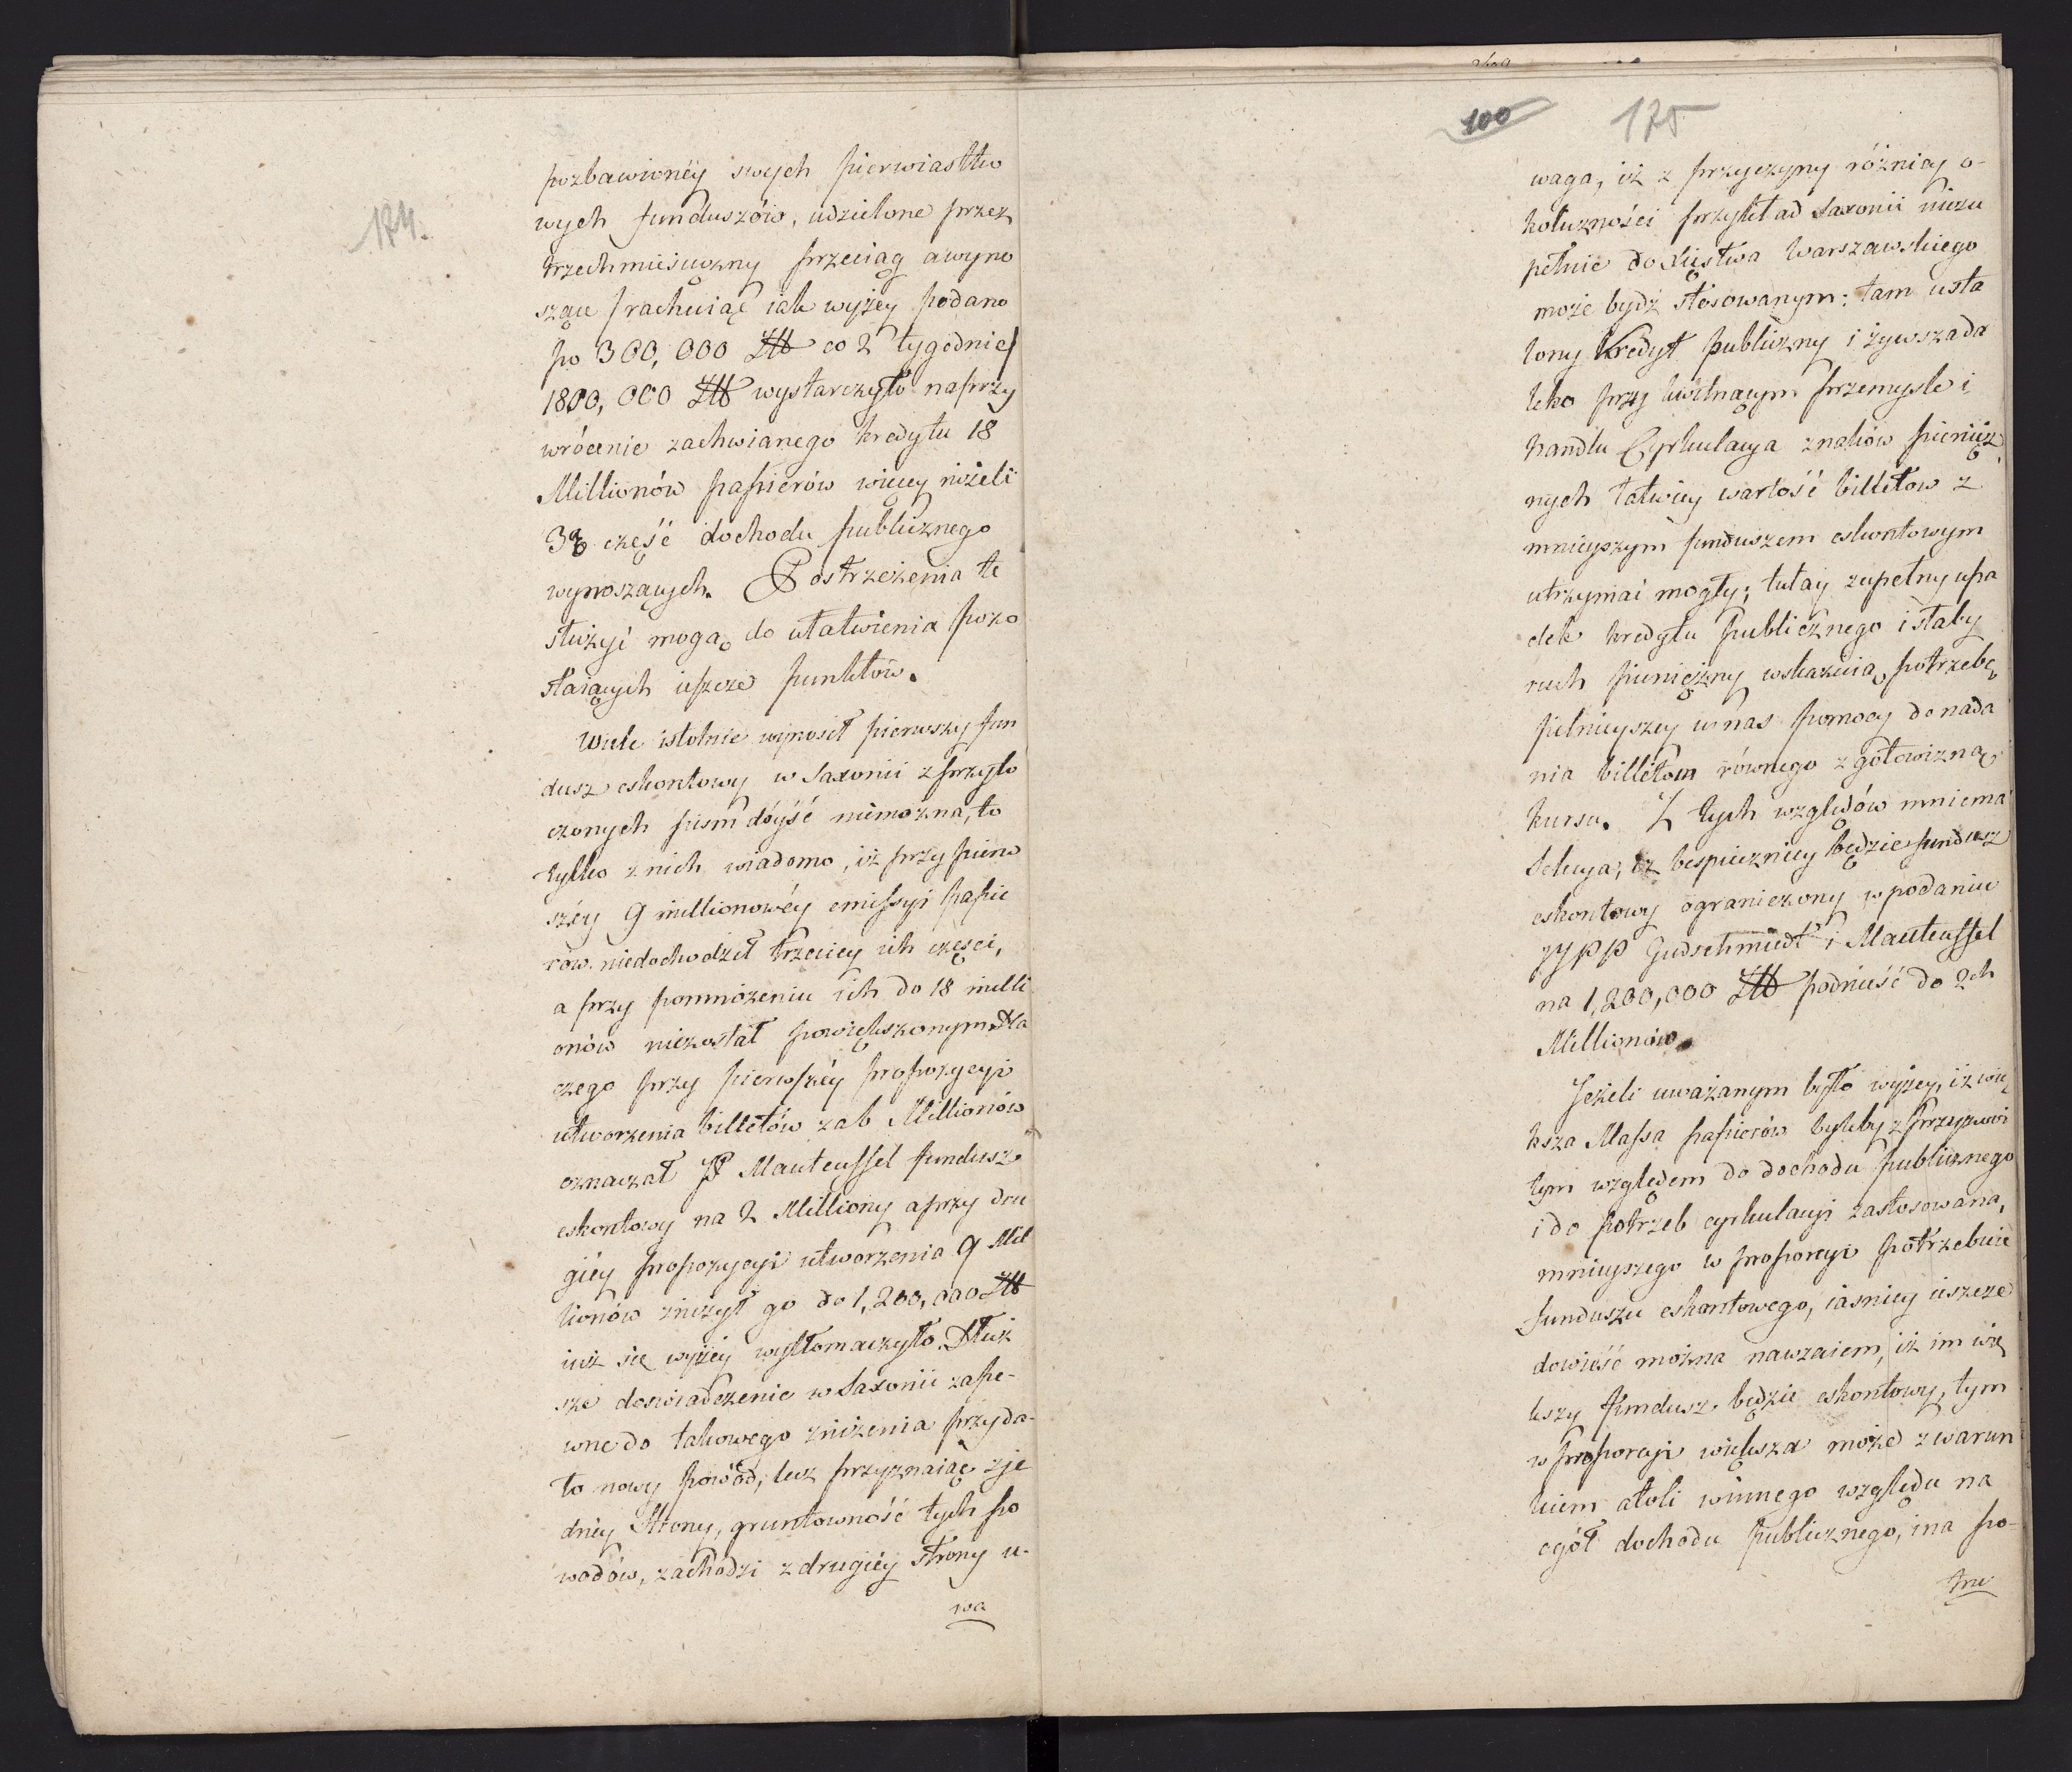 174.
pozbawionéy swych pierwiastko
wych funduszów, udzielone przez
trzechmiesięczny przeciąg a wyno
szące /rachuiąc iak wyżey podano
po 300,000 Złł co 2 tygodnie/
1800,000 Złł wystarczyło na przy
wrócenie zachwianego kredytu 18
Millionów papierów więcey niżeli
3ą część dochodu publicznego
wynoszących. Postrzeżenia te
służyć mogą do ułatwienia pozo
staiących ieszcze punktów.
Wiele istotnie wynosił pierwszy fun
dusz eskontowy w Saxonii z przyto
czonych pism dóyść niemożna, to
tylko z nich wiadomo, iż przy pierw
széy 9 millionowéy emissyi papie
rów niedochodził trzeciey ich części,
a przy pomnożeniu ich do 18 milli
onów niezostał powiększonym. Dla
czego przy pierwszéy propozycyi
utworzenia billetów za 6 Millionów
oznaczał JP Manteuffel fundusz
eskontowy na 2 Milliony a przy dru
giéy propozycyi utworzenia 9 Mil
lionów zniżył go do 1,200,000 Złł
iuż się wyżéy wytłomaczyło. Dłuż
sze doswiadczenie w Saxonii zape-
wne do takowego zniżenia przyda-
ło nowy powód, lecz przyznaiąc z je
dnéy Strony, gruntowność tych po
wodów, zachodzi z drugiéy strony u-
wa
100 175
waga, iż z przyczyny różniącey o-
koliczności przykład Saxonii niezu
pełnie do Xięstwa Warszawskiego
może bydź stosowanym: tam usta
lony Kredyt publiczny i żywsza da
leko przy kwitnącym przemysle i
handlu Cyrkulacya znaków pienięż
nych łatwiey wartość billetów z
mnieyszym funduszem eskontowym
utrzymać mogły; tutay zupełny upa
dek kredytu publicznego i słaby
ruch pieniężny wskazuią potrzebę
silnieyszey u nas pomocy do nada
nia billetom równego z gotowizną
kursu. Z tych względów mniema
Sekcya, iż bespieczniey będzie fundusz
eskontowy ograniczony w podaniu
JJPP Gudschmidt i Manteuffel
na 1,200,000 Złł podnieść do 2ch
Millionów.
Jeżeli uważanym było wyżey, iż wię
ksza Massa papierów byleby z przyzwoi
tym względem do dochodu publicznego
i do potrzeb cyrkulacyi zastosowana,
mnieyszego w proporcyi potrzebuie
funduszu eskontowego, iasniey ieszcze
dowieść można nawzaiem, iż im wię
kszy fundusz będzie eskontowy, tym
w proporcyi większa może z warun
kiem atoli winnego względu na
ogół dochodu publicznego, i na po-
trze